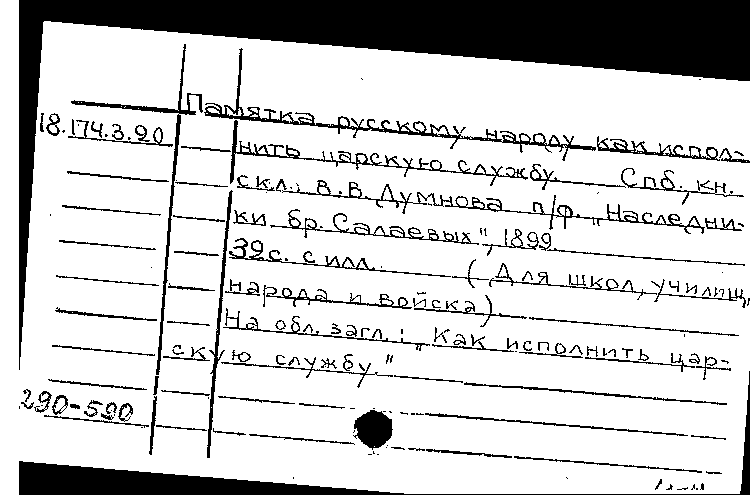 Памятка русскому народу как испол-
18.174.3.20
нить царскую службу. Спб., кн.
скл. В.В. Думнова п/ф. „Наследни-
ки бр. Салаевых", 1899.
39с. с илл. (Для школ, училищ,
народа и войска)
На обл. загл.: „Как исполнить цар-
скую службу."
290-590